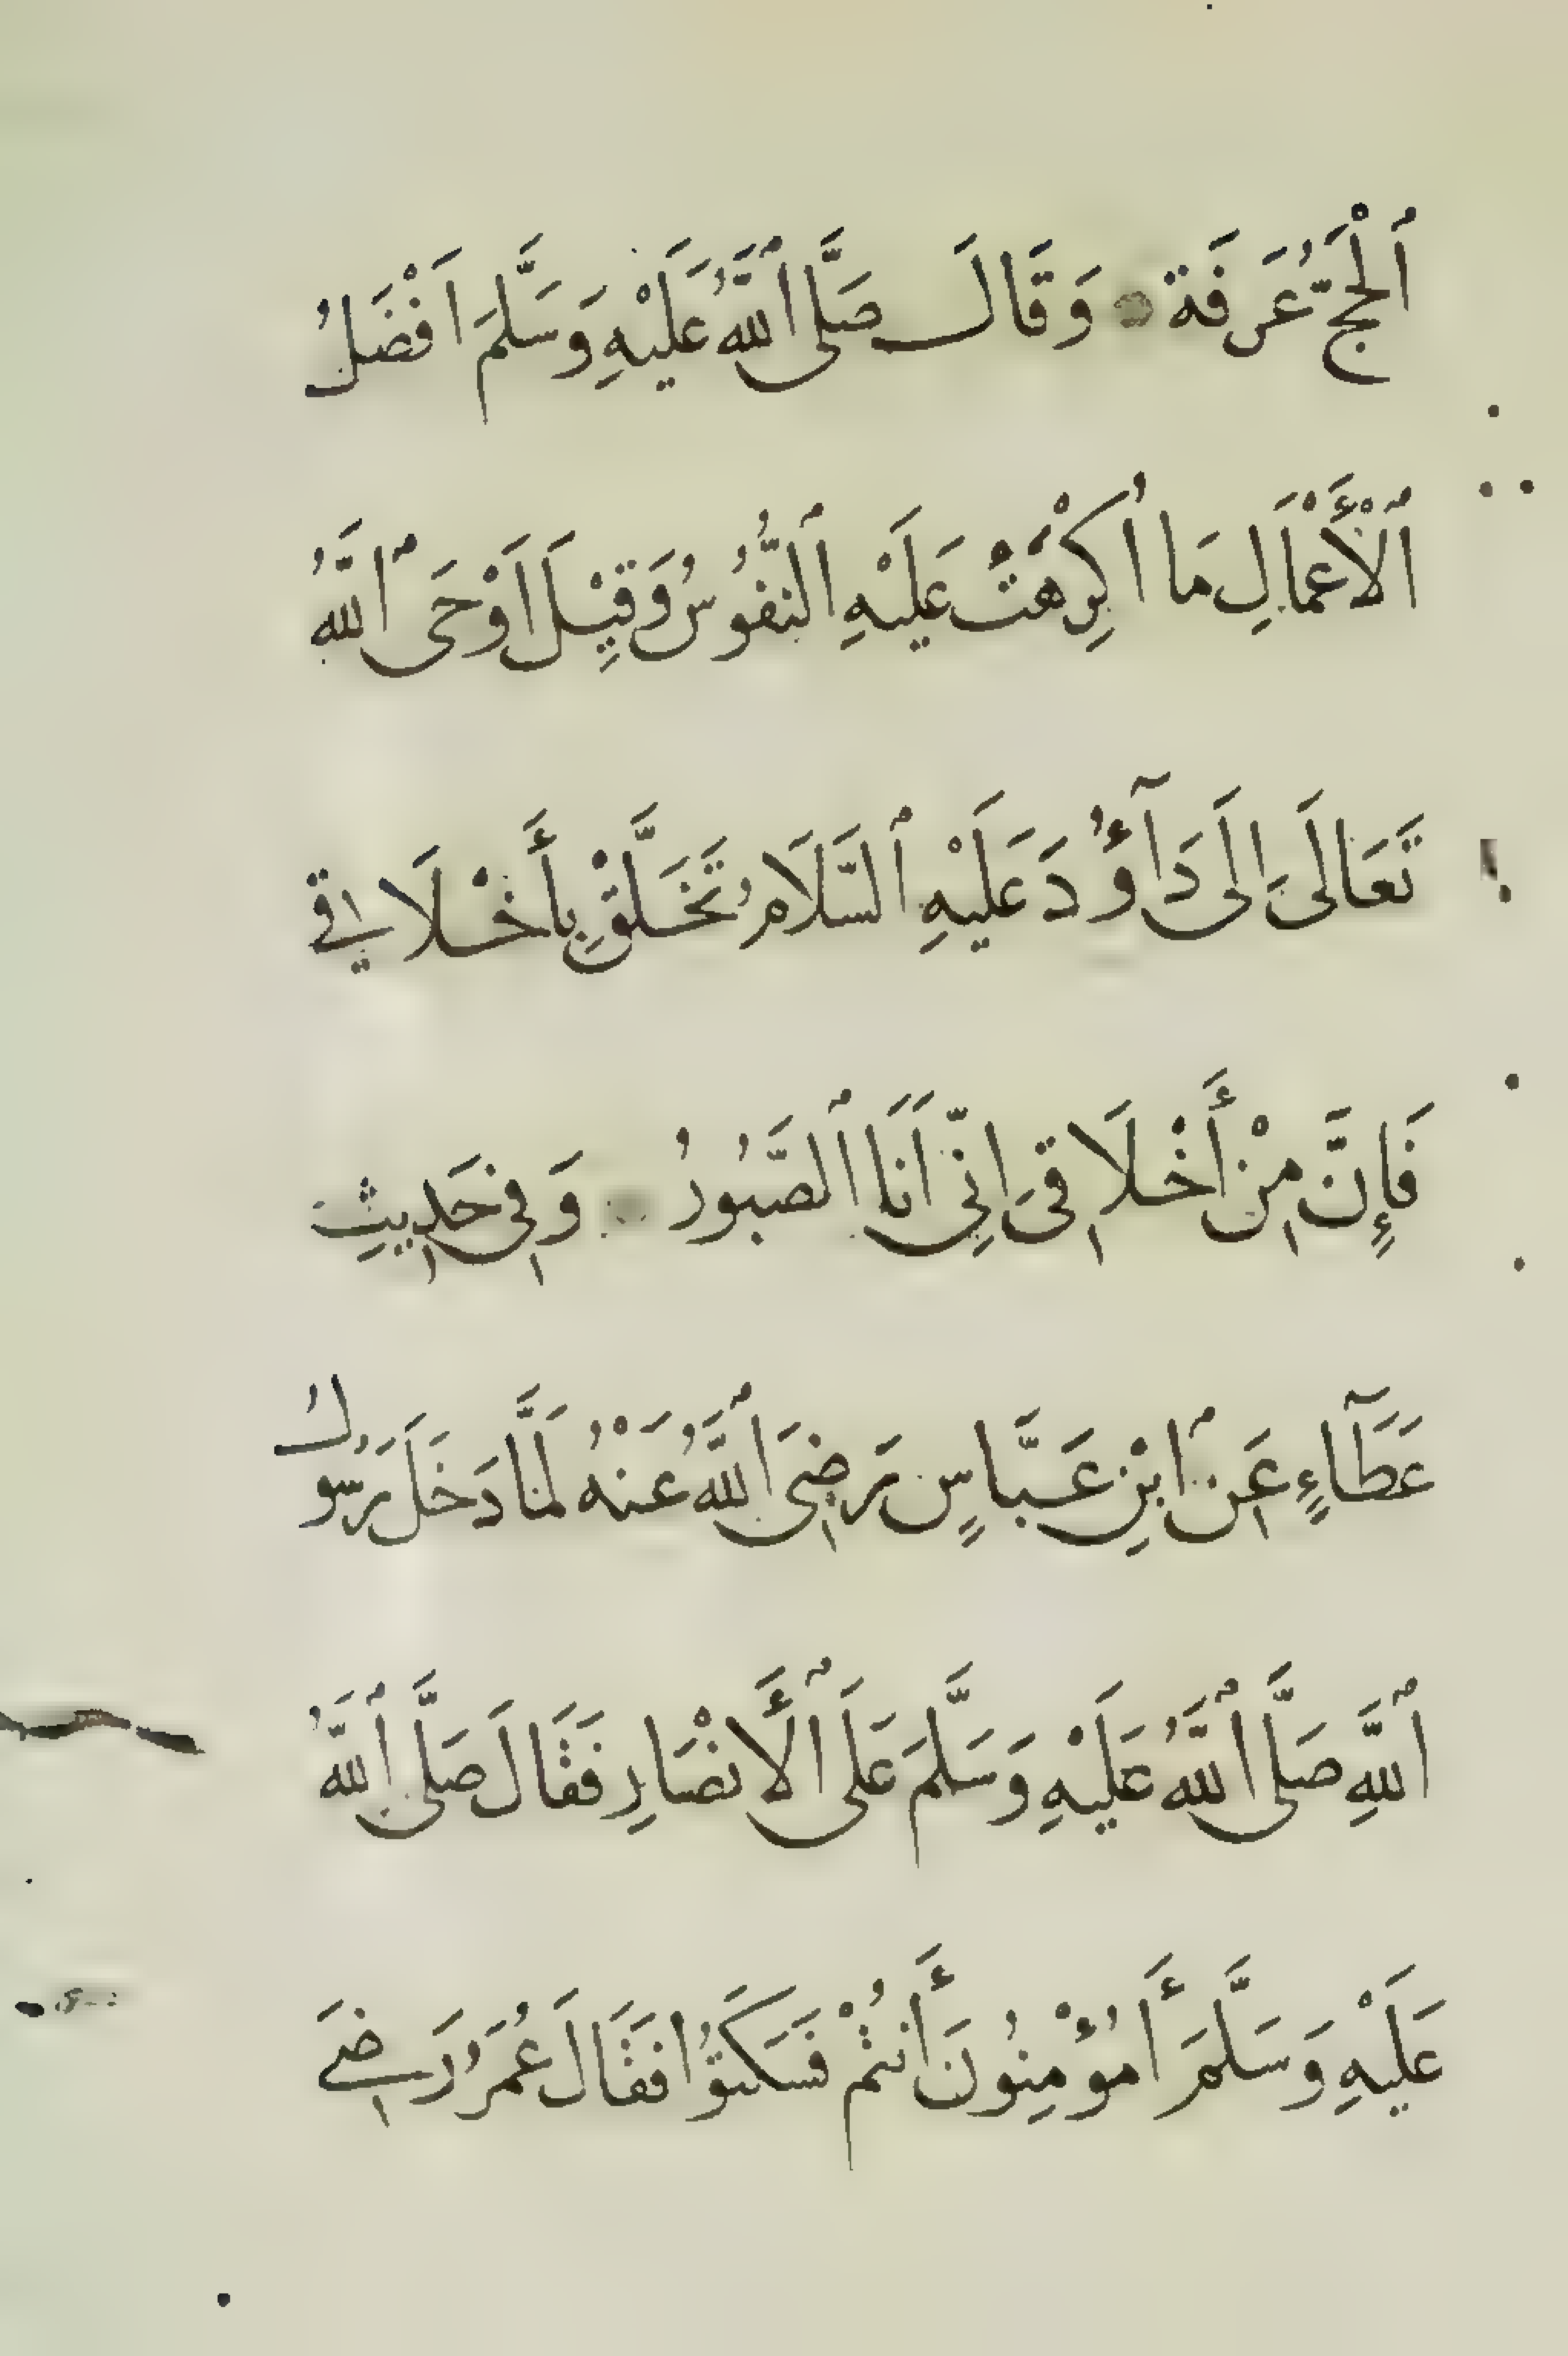 ٱلْحَجُّ عَرَفَة وَقَالَ صَلَّى ٱللَّهُ عَلَيْهِ وَسَلَّمَ اَفْضَلُ
ٱلْأَعْمَالِ مَا أُكْرِهَتْ عَلَيْهِ ٱلنُّفُوسُ وَقِيْلَ اَوْحَى ٱللَّهُ
تَعَالَى اِلَى دَآؤُدَ عَلَيْهِ ٱلسَّلَامُ تَخَلَّقْ بِأَخْلَاقِي
فَإِنَّ مِنْ أَخْلَاقِى اِنِّى اَنَا ٱلصَّبُورُ وَفِى حَدِيثِ
عَطَآءٍ عَنِ ٱبْنِ عَبَّاسٍ رَضِىَ ٱللَّهُ عَنْهُ لَمَّا دَخَلَ رَسُولُ
ٱللَّهِ صَلَّى ٱللَّهُ عَلَيْهِ وَسَلَّمَ عَلَى ٱلْأَنْصَارِ فَقَالَ صَلَّى ٱللَّهُ
عَلَيْهِ وَسَلَّمَ أَمُؤْمِنُونَ أَنْتُمْ فَسَكَتُوا فَقَالَ عُمَرُ رَضِىَ